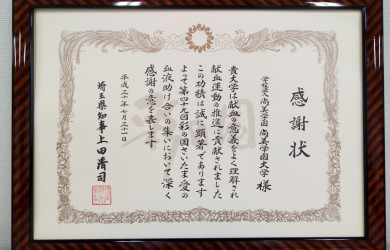 感謝状
学校法人 尚美学園 尚美学園大学 様
貴大学は献血の意義をよく理解され
献血運動の推進に貢献されました
この功績は誠に顕著であります
よって第四十九回彩の国さいたま愛の
血液助け合いの集いにおいて深く
感謝の意を表します
平成二十年七月三十一日
埼玉県知事 上田清司